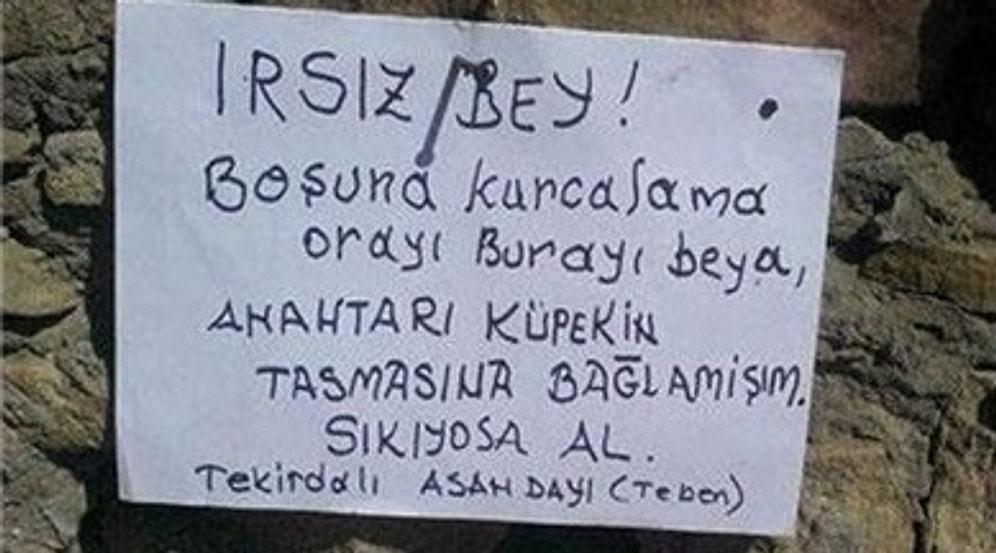 IRSIZ BEY!
Boşuna kurcalama
orayı Burayı beya,
AHAHTARI KÜPEKİN
TASMASINA BAĞLAMİŞIM.
SIKIYOSA AL.
Tekirdalı ASAN DAYI (Teben)